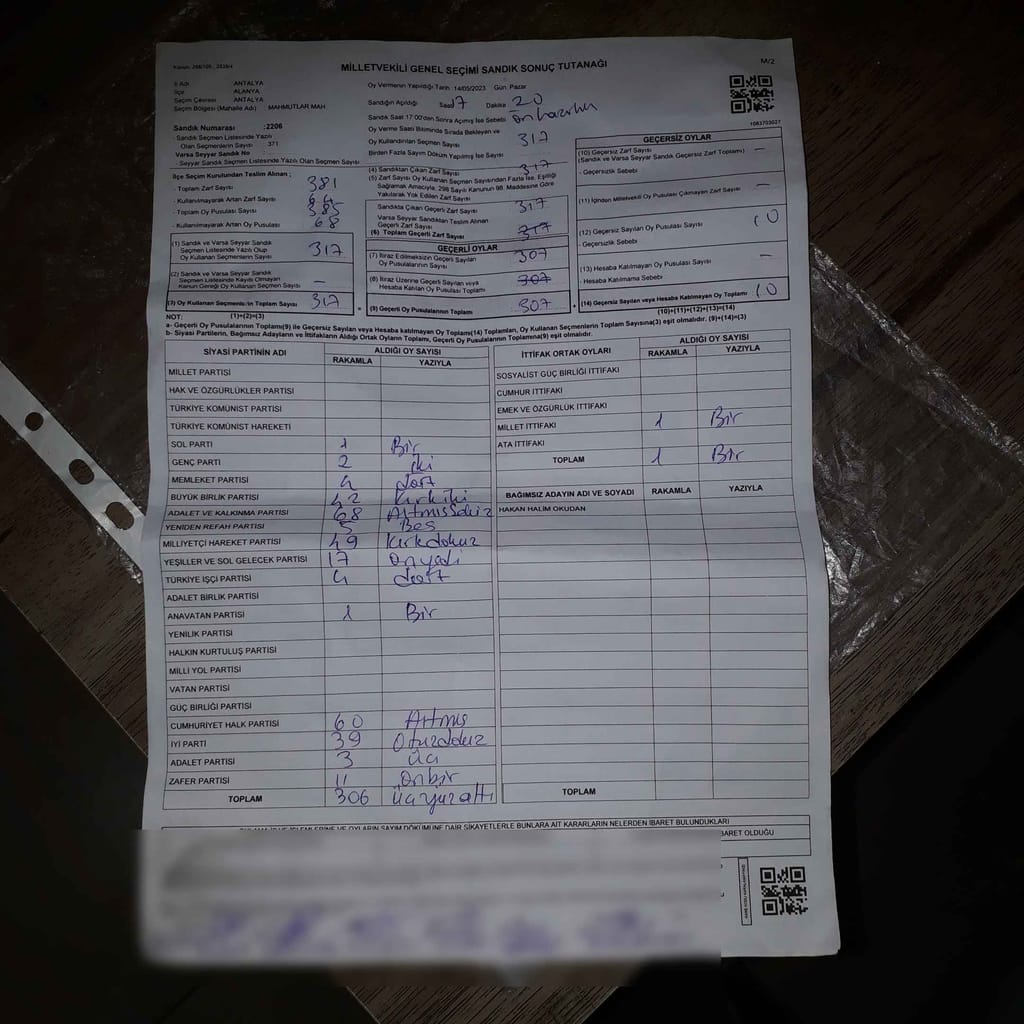 MİLLETVEKİLİ GENEL SEÇİMİ SANDIK SONUÇ TUTANAĞI
M/2
İl Adı ANTALYA
İlçe ALANYA
Seçim Çevresi ANTALYA
Seçim Bölgesi (Mahalle Adı) MAHMUTLAR MAH
Oy Vermenin Yapıldığı Tarih 14/05/2023 Gün Pazar
Sandığın Açıldığı Saat 17 Dakika 20
Sandık Saat 17:00'den Sonra Açılmış İse Sebebi
Sandık Numarası :2206
Sandık Seçmen Listesinde Yazılı
Olan Seçmenlerin Sayısı 371
Varsa Seyyar Sandık No
- Seyyar Sandık Seçmen Listesinde Yazılı Olan Seçmen Sayısı
Oy Verme Saati Bitiminde Sırada Bekleyen ve
Oy Kullandırılan Seçmen Sayısı 317
Birden Fazla Sayım Döküm Yapılmış İse Sayısı
1083703027
İlçe Seçim Kurulundan Teslim Alınan ;
- Toplam Zarf Sayısı 381
- Kullanılmayarak Artan Zarf Sayısı 64
- Toplam Oy Pusulası Sayısı 385
- Kullanılmayarak Artan Oy Pusulası 68
(1) Sandık ve Varsa Seyyar Sandık
Seçmen Listesinde Yazılı Olup
Oy Kullanan Seçmenlerin Sayısı 317
(2) Sandık ve Varsa Seyyar Sandık
Seçmen Listesinde Kayıtlı Olmayan
Kanun Gereği Oy Kullanan Seçmen Sayısı –
(3) Oy Kullanan Seçmenlerin Toplam Sayısı 317
(4) Sandıktan Çıkan Zarf Sayısı 317
(5) Zarf Sayısı Oy Kullanan Seçmen Sayısından Fazla İse, Eşitliği
Sağlamak Amacıyla, 298 Sayılı Kanunun 98. Maddesine Göre
Yakılarak Yok Edilen Zarf Sayısı
Sandıkta Çıkan Geçerli Zarf Sayısı 317
Varsa Seyyar Sandıktan Teslim Alınan
Geçerli Zarf Sayısı
(6) Toplam Geçerli Zarf Sayısı 317
GEÇERLİ OYLAR
(7) İtiraz Edilmeksizin Geçerli Sayılan
Oy Pusulalarının Sayısı 307
(8) İtiraz Üzerine Geçerli Sayılan veya
Hesaba Katılan Oy Pusulası Toplamı 307
(9) Geçerli Oy Pusulalarının Toplamı 307
GEÇERSİZ OYLAR
(10) Geçersiz Zarf Sayısı –
(Sandık ve Varsa Seyyar Sandık Geçersiz Zarf Toplamı)
- Geçersizlik Sebebi
(11) İçinden Milletvekili Oy Pusulası Çıkmayan Zarf Sayısı –
(12) Geçersiz Sayılan Oy Pusulası Sayısı 10
- Geçersizlik Sebebi
(13) Hesaba Katılmayan Oy Pusulası Sayısı –
Hesaba Katılmama Sebebi
(14) Geçersiz Sayılan veya Hesaba Katılmayan Oy Pusulası Toplamı 10
NOT: (1)+(2)=(3) (10)+(11)+(12)+(13)=(14)
a- Geçerli Oy Pusulalarının Toplamı(9) ile Geçersiz Sayılan veya Hesaba katılmayan Oy Toplamı(14) Toplamları, Oy Kullanan Seçmenlerin Toplam Sayısına(3) eşit olmalıdır. (9)+(14)=(3)
b- Siyasi Partilerin, Bağımsız Adayların ve İttifakların Aldığı Ortak Oyların Toplamı, Geçerli Oy Pusulalarının Toplamına(9) eşit olmalıdır.
SİYASİ PARTİNİN ADI ALDIĞI OY SAYISI
RAKAMLA YAZIYLA
MİLLET PARTİSİ
HAK VE ÖZGÜRLÜKLER PARTİSİ
TÜRKİYE KOMÜNİST PARTİSİ
TÜRKİYE KOMÜNİST HAREKETİ
SOL PARTİ 1 Bir
GENÇ PARTİ 2 iki
MEMLEKET PARTİSİ 4 dört
BÜYÜK BİRLİK PARTİSİ 42 Kırkiki
ADALET VE KALKINMA PARTİSİ 68 Altmışsekiz
YENİDEN REFAH PARTİSİ 5 Beş
MİLLİYETÇİ HAREKET PARTİSİ 49 Kırkdokuz
YEŞİLLER VE SOL GELECEK PARTİSİ 17 Onyedi
TÜRKİYE İŞÇİ PARTİSİ 4 dört
ADALET BİRLİK PARTİSİ
ANAVATAN PARTİSİ 1 Bir
YENİLİK PARTİSİ
HALKIN KURTULUŞ PARTİSİ
MİLLİ YOL PARTİSİ
VATAN PARTİSİ
GÜÇ BİRLİĞİ PARTİSİ
CUMHURİYET HALK PARTİSİ 60 Altmış
İYİ PARTİ 39 Otuzdokuz
ADALET PARTİSİ 3 üç
ZAFER PARTİSİ 11 Onbir
TOPLAM 306 üçyüzaltı
İTTİFAK ORTAK OYLARI ALDIĞI OY SAYISI
RAKAMLA YAZIYLA
SOSYALİST GÜÇ BİRLİĞİ İTTİFAKI
CUMHUR İTTİFAKI
EMEK VE ÖZGÜRLÜK İTTİFAKI
MİLLET İTTİFAKI 1 Bir
ATA İTTİFAKI
TOPLAM 1 Bir
BAĞIMSIZ ADAYIN ADI VE SOYADI RAKAMLA YAZIYLA
HAKAN HALİM OKUDAN
TOPLAM
İŞLEMLERİNE VE OYLARIN SAYIM DÖKÜMÜNE DAİR ŞİKAYETLERLE BUNLARA AİT KARARLARIN NELERDEN İBARET BULUNDUKLARI
İBARET OLDUĞU